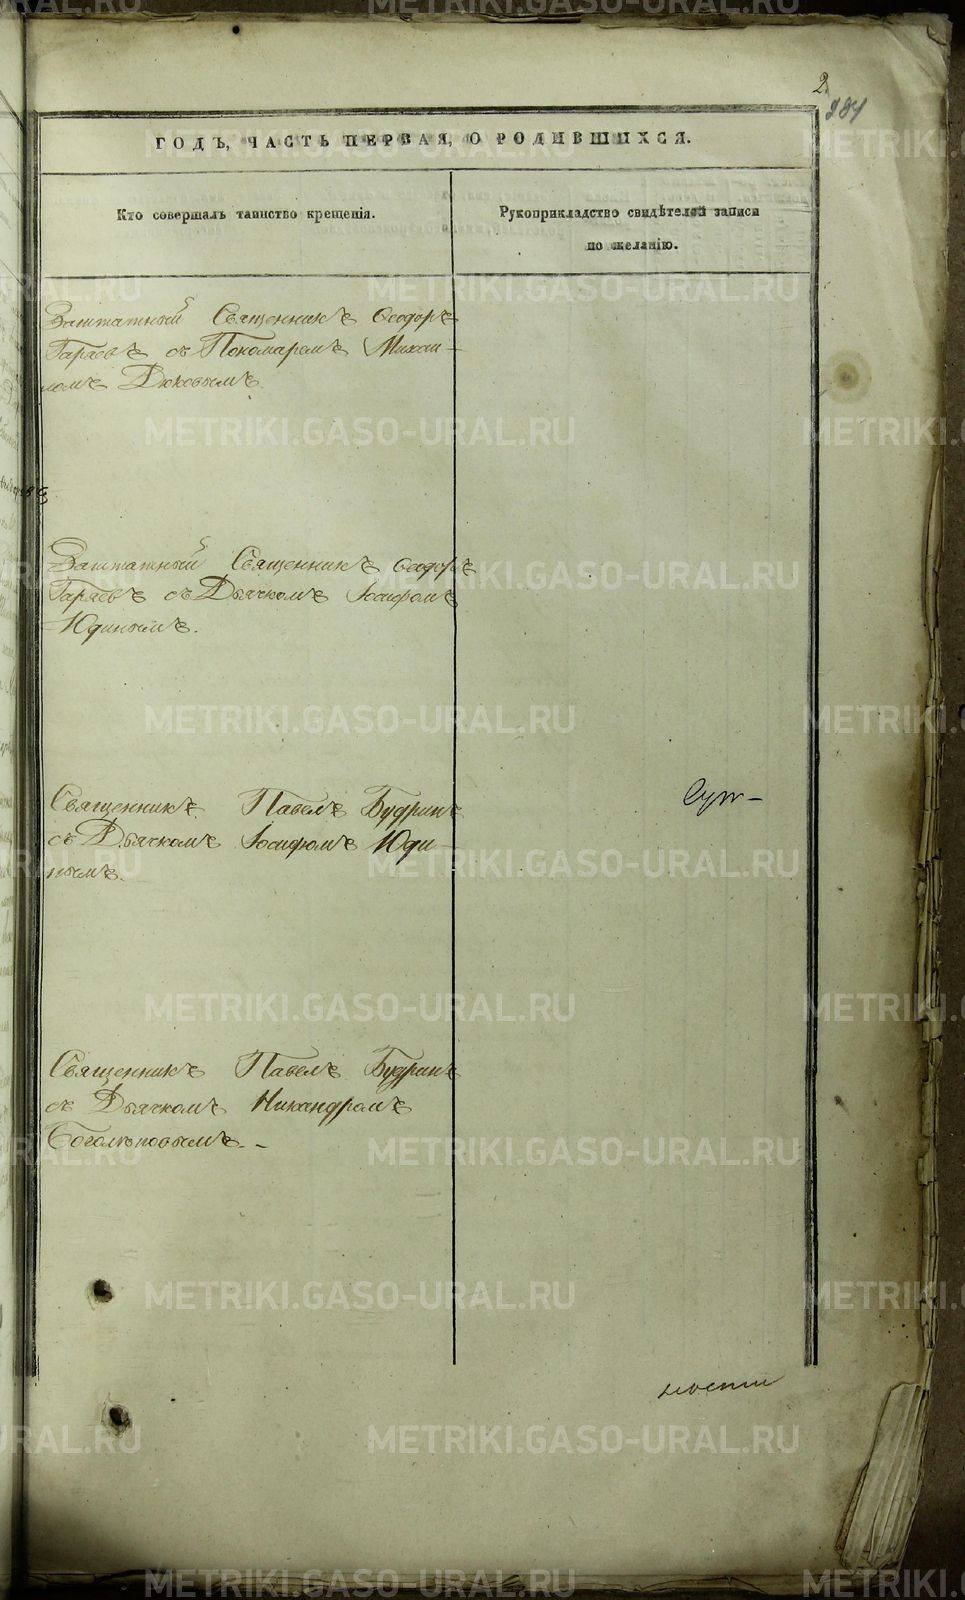 2
284
ГОДЪ, ЧАСТЬ ПЕРВАЯ, О РОДИВШИХСЯ.
Кто совершалъ таинство крещенія.
Рукоприкладство свидѣтелей записи
по желанію.
Заштатный Священникъ Ѳеодоръ
Гаряевъ съ Пономаремъ Михаи-
ломъ Дюковымъ.
Заштатный Священникъ Ѳеодоръ
Гаряевъ съ Дьячкомъ Іосифомъ
Юдинымъ.
Священникъ Павелъ Будринъ
съ Дьячкомъ Іосифомъ Юди-
нымъ.
Священникъ Павелъ Будринъ
съ Дьячкомъ Никандромъ
Боголѣповымъ. -
METRIKI.GASO-URAL.RU